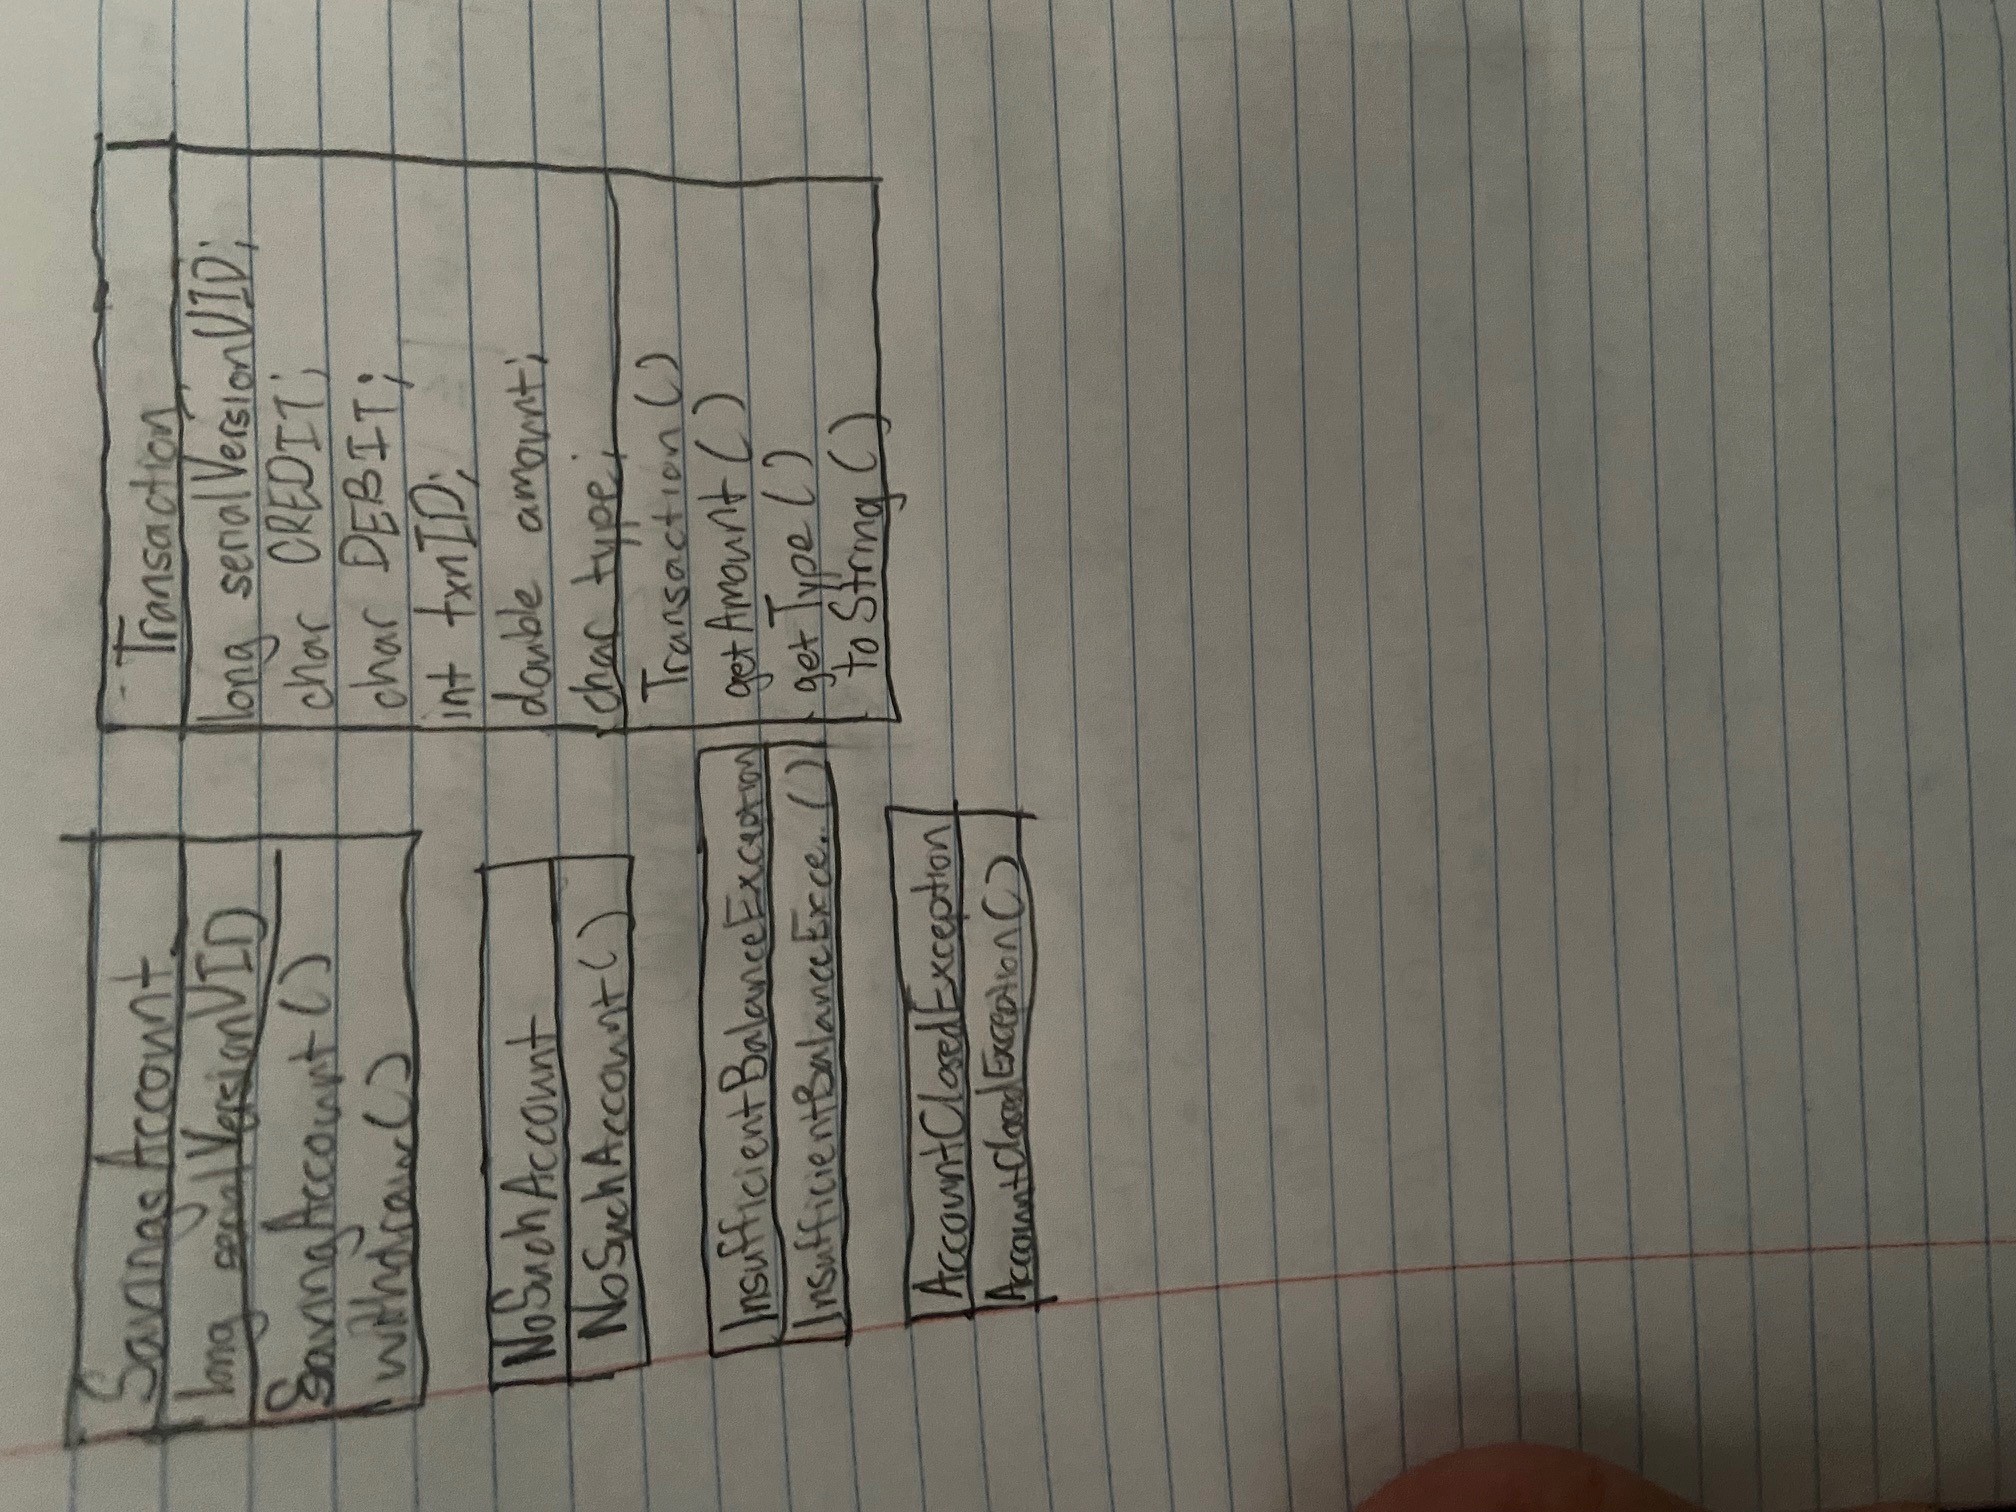 SavingsAccount
long serialVersionUID
SavingAccount()
withdraw()
NoSuchAccount
NoSuchAccount()
InsufficientBalanceException
InsufficientBalanceExce..()
AccountClosedException
AccountClosedException()
Transaction
long serialVersionUID;
char CREDIT;
char DEBIT;
int txnID;
double amount;
char type;
Transaction()
getAmount()
getType()
toString()